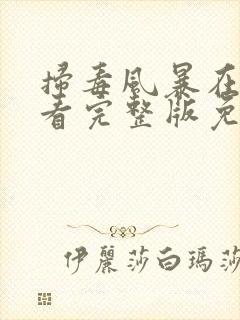 掃毒風暴在
看完整版免
伊麗莎白瑪莎